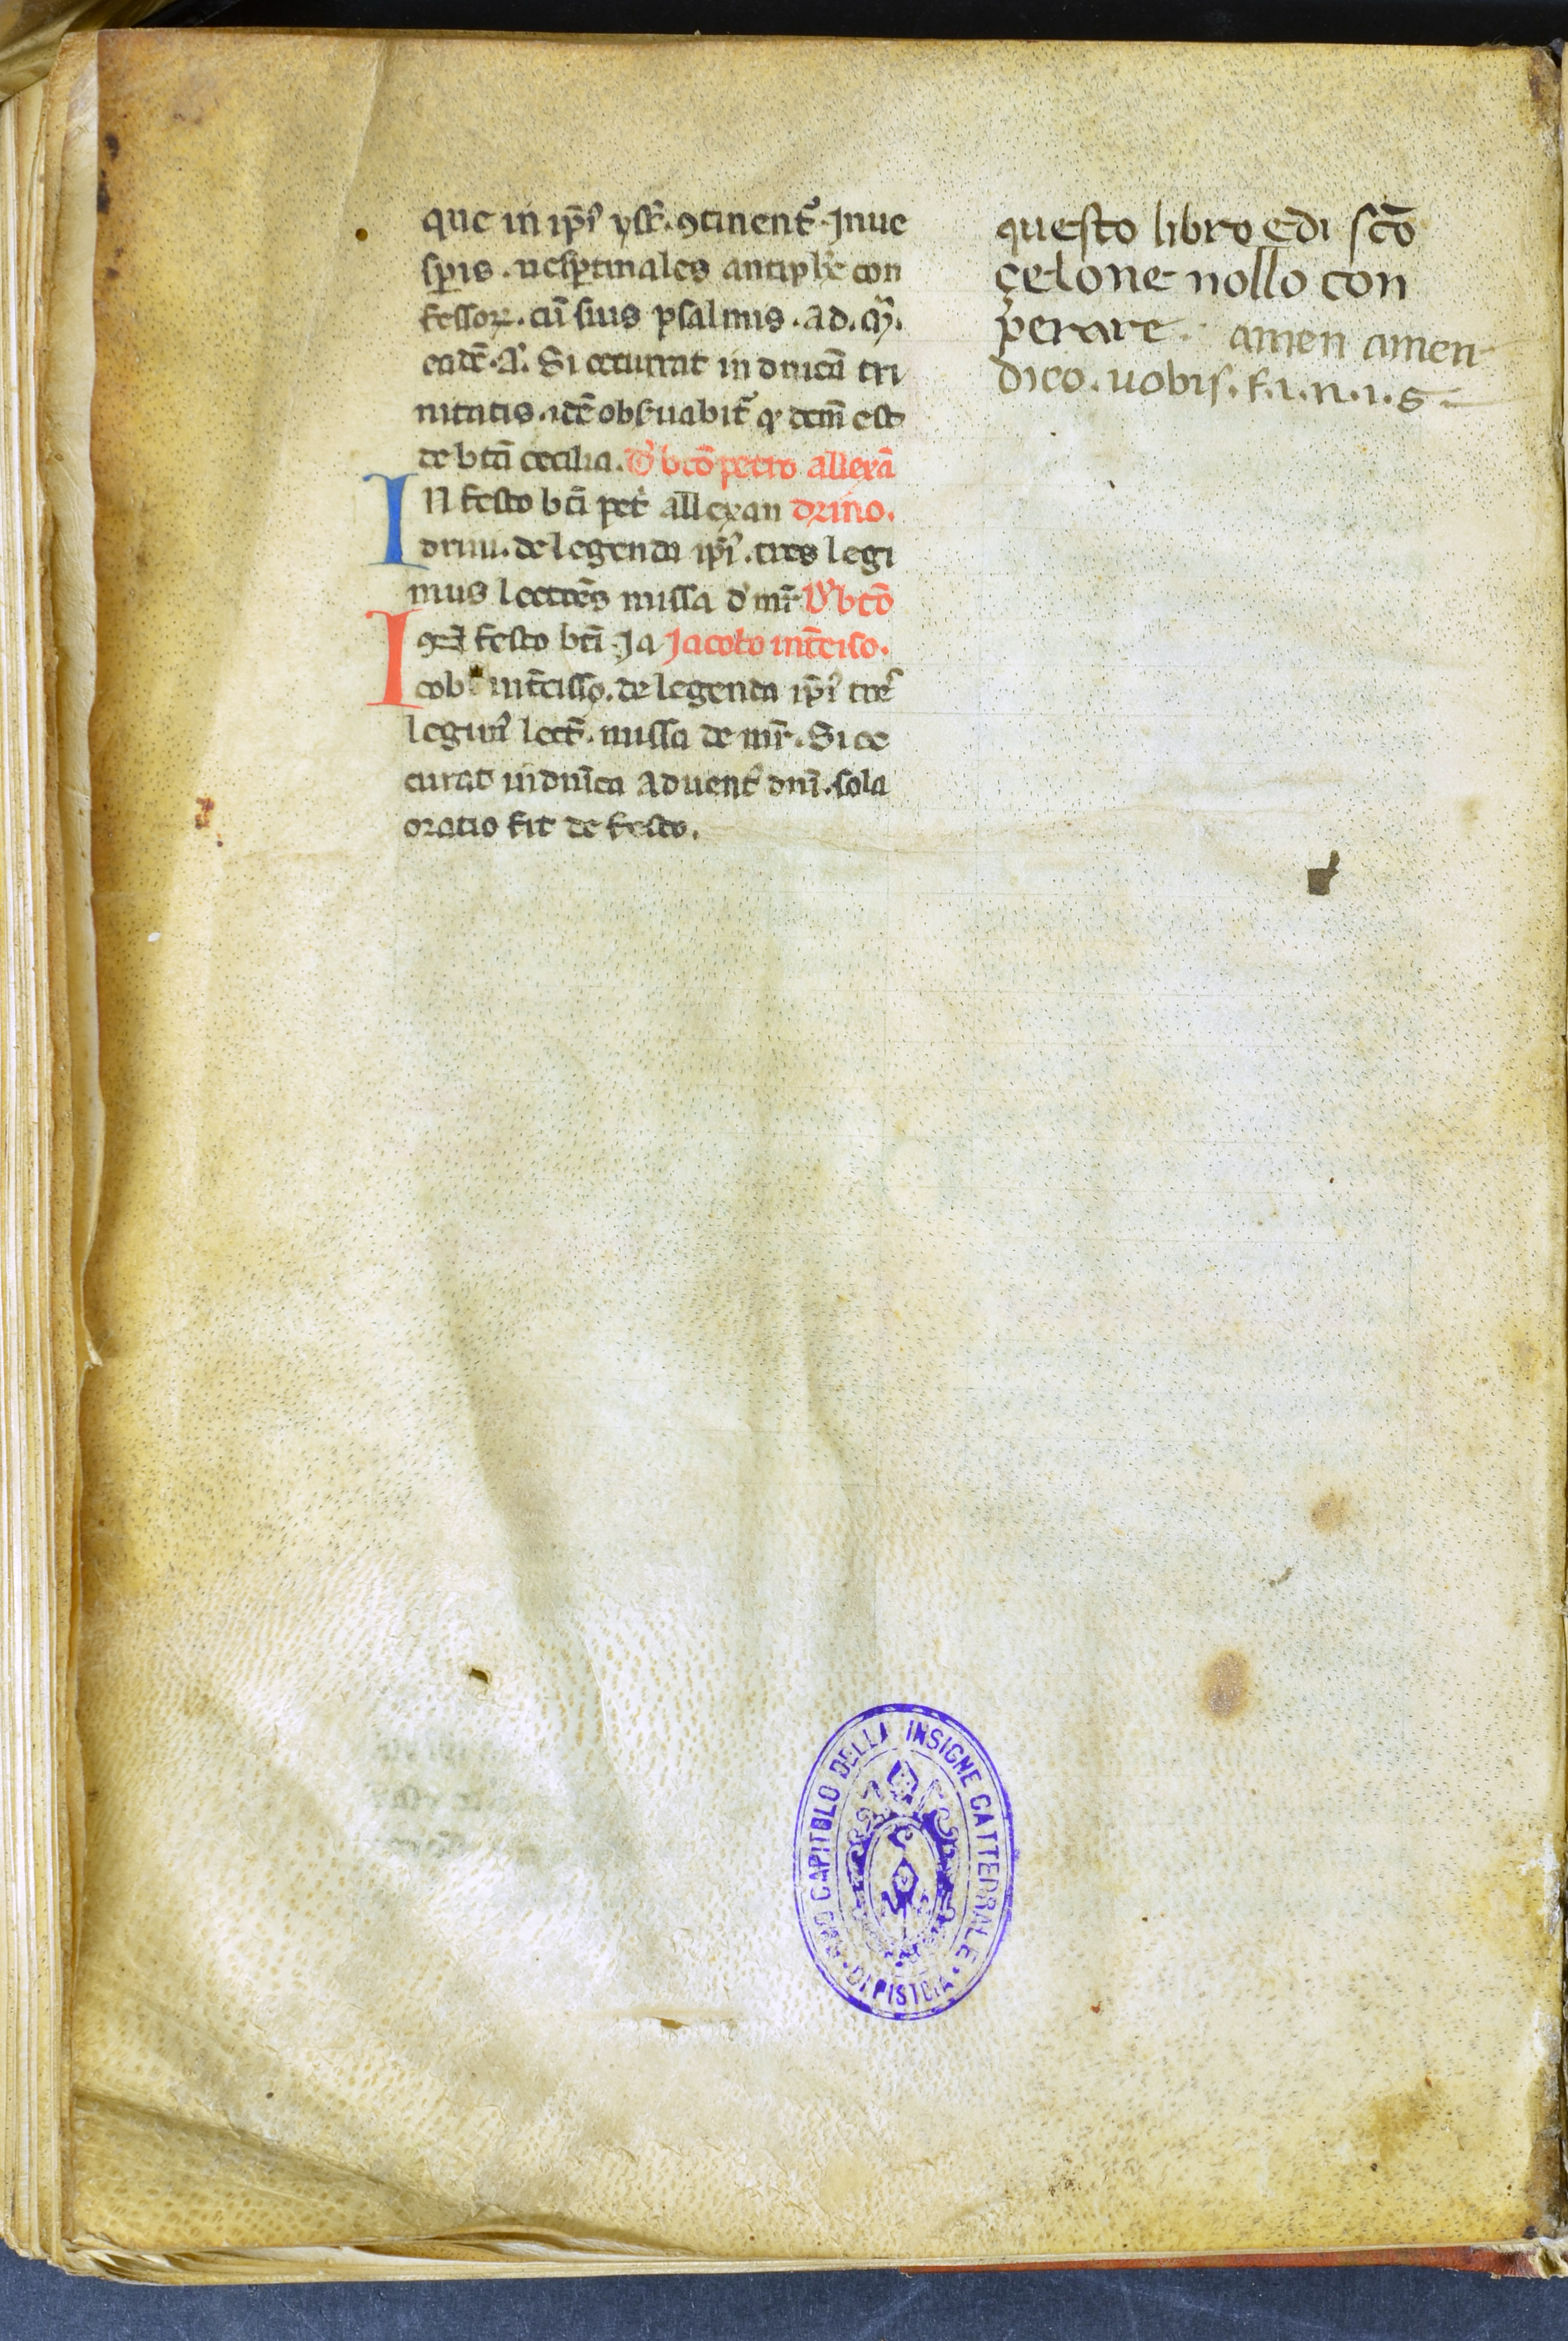 que in ip̄i᷒ yst̄. ꝯtinent᷑. Jn ue
sp̱is. uesp̱tinales antiph̄e con
fessoꝝ. cū suis psalmis. ad. m̄.
eadē. a᷒. Si occurrat in dn̄ica tri
nitatis. idē obs̱uabit᷑ qd̓ dcm̄ est
de bt̄a cecilia. D̓ bt̄o petro allexā
IN festo bt̄i pet̓ allexan drino.
drini. de legenda ip̄i᷒. tres legi
mus lectōēs missa d̓ mr̄. D̓ bt̄o
In festo bt̄i Ja Jacobo int̄ciso.
cob int̄cisso. de legenda ip̄i᷒ tres
legim᷒ lect̄. missa de mr̄. Si oc
curat in dn̄ica aduent᷒ dn̄i. sola
oratio fit de festo.
questo libro e di sc̄o
çelone nollo con
perare. amen amen
dico. uobis. f. i. n. i. s
CAPITOLO DELLA INSIGNE CATTEDRALE
DI PISTOIA